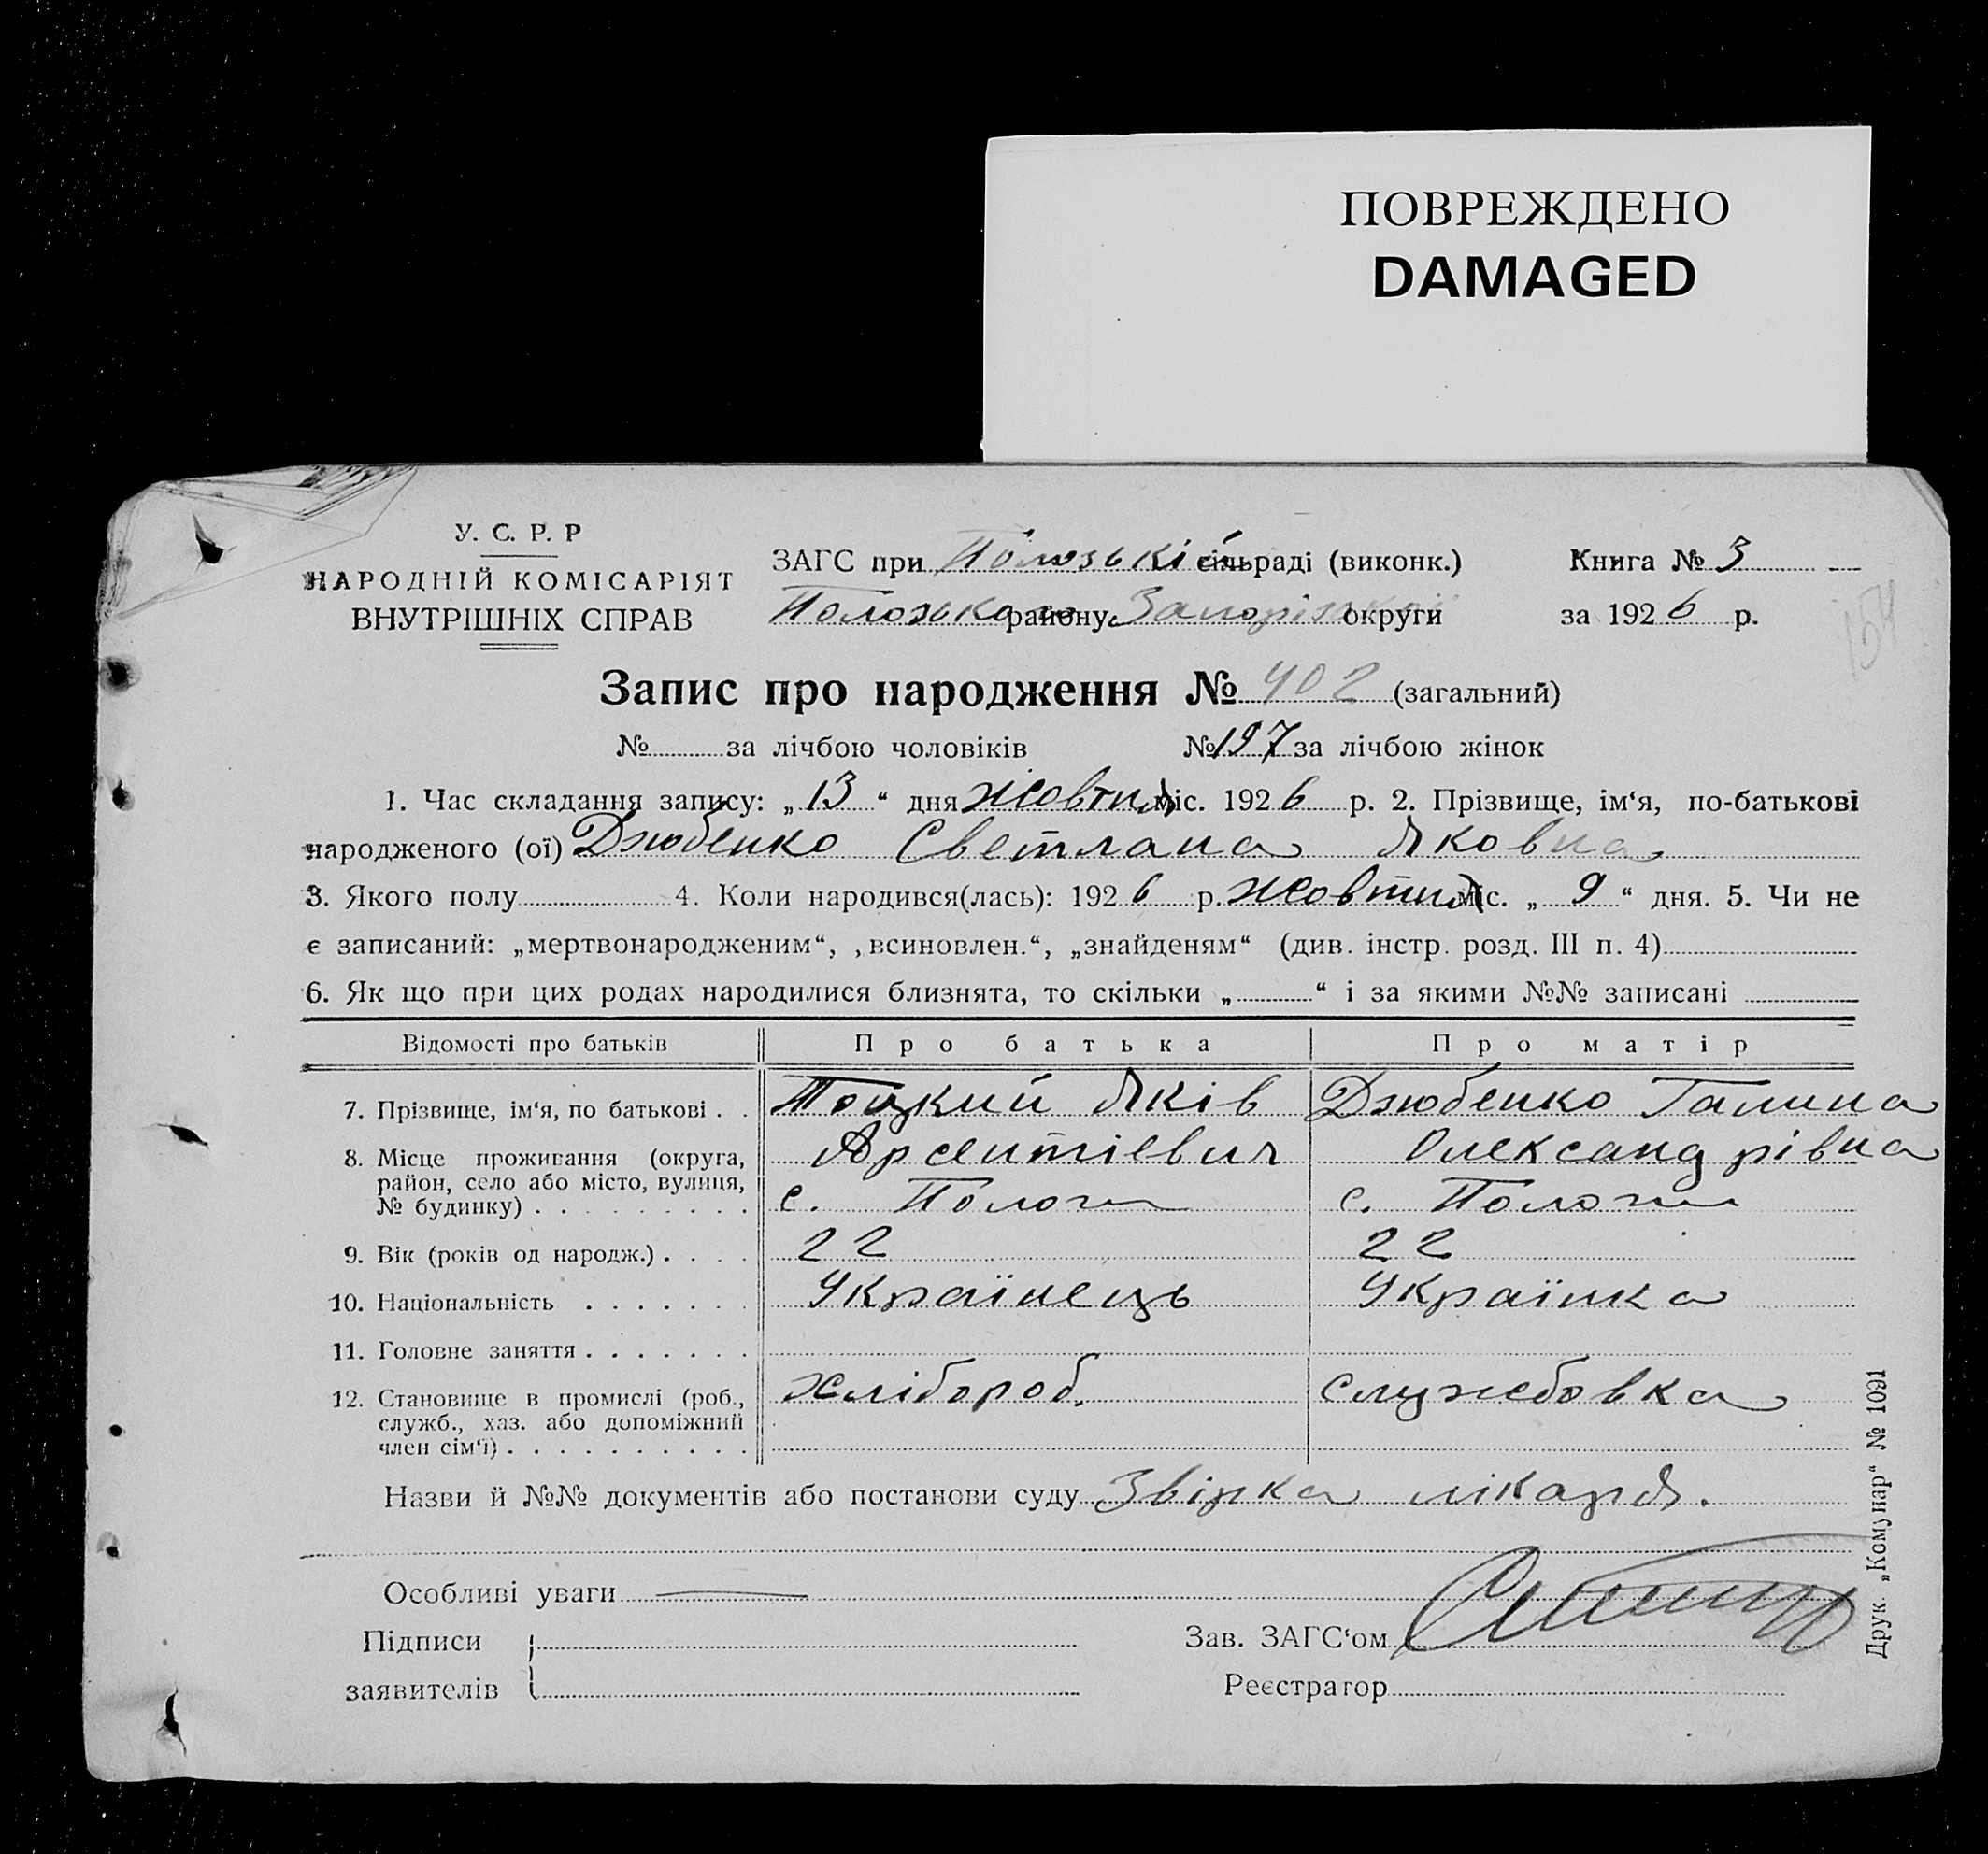 ПОВРЕЖДЕНО
DAMAGED
У. С. Р. Р
НАРОДНІЙ КОМІСАРІЯТ
ВНУТРІШНІХ СПРАВ
ЗАГС при Пологській сільраді (виконк.)
Пологсько району Запоріжської округи
Книга № 3
за 1926 р.
154
Запис про народження № 402 (загальний)
№ за лічбою чоловіків № 197 за лічбою жінок
1. Час складання запису: „13“ дня жовтня міс. 1926 р. 2. Прізвище, ім‘я, по-батькові
народженого (ої) Дзюбенко Светлана Яковна
3. Якого полу 4. Коли народився(лась): 1926 р. жовтня міс. „9“ дня. 5. Чи не
є записаний: „мертвонародженим“, „всиновлен.“, „знайденям“ (див. інстр. розд. III п. 4)
6. Як що при цих родах народилися близнята, то скільки „ “ і за якими №№ записані
Відомості про батьків Про батька Про матір
7. Прізвище, ім‘я, по батькові . . Тоцкий Яків Дзюбенко Галина
Арсентіевич Олександрівна
8. Місце проживання (округа,
район, село або місто, вулиця,
№ будинку) . . . . . . . . . с. Пологи с. Пологи
9. Вік (років од народж.) . . . . 22 22
10. Національність . . . . . . . Українець Українка
11. Головне заняття . . . . . . .
12. Становище в промислі (роб., хлібороб. служебовка
служб., хаз. або допоміжний
член сім‘ї) . . . . . . . . . .
Назви й №№ документів або постанови суду Звірка лікаря.
Особливі уваги
Підписи
заявителів
Зав. ЗАГС‘ом
Реєстратор
Друк. „Комунар“ № 1091